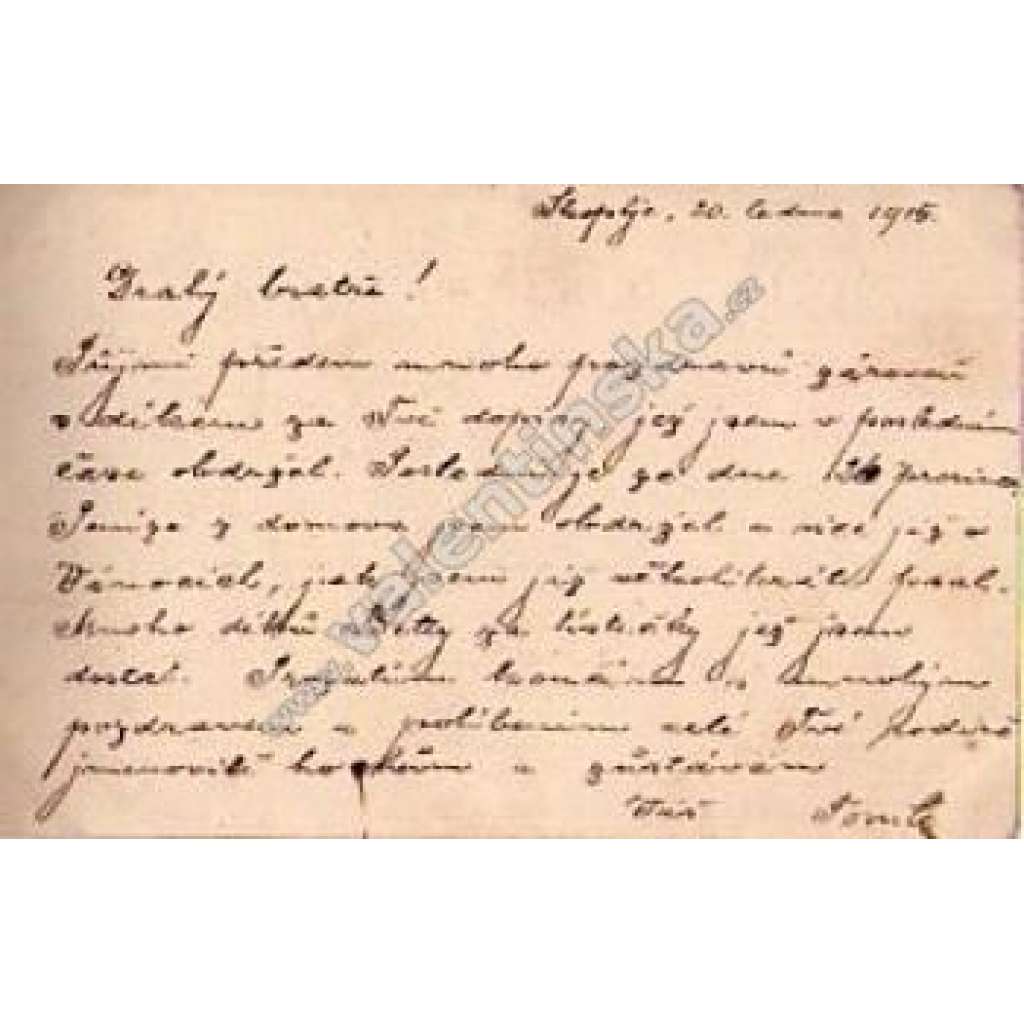 Skoplje, 20. ledna 1915.
Drahý bratře!
Přijmi předem mnoho pozdravů zároveň
s díkem za Tvé dopisy, jež jsem v poslední
čase obdržel. Poslední je ze dne 26 prosince
Peníze z domova jsem obdržel a více již o
Vánocích, jak jsem již několikráte psal.
Mnoho díků za lístečky jež jsem
dostal. Prozatím končím s mnohým
pozdravem a políbením celé Tvé rodině
jmenovitě hochům a zůstávám
Váš
www.Valentinska.cz